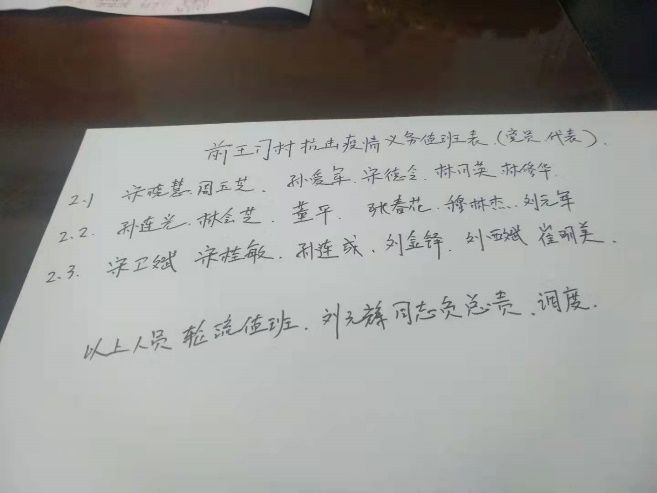 前王门村抗击疫情义务值班表(党员 代表).
2.1 宋桂慧.周玉芝. 孙爱军. 宋德全. 林同英 林俊华.
2.2. 孙连光. 林会芝. 董平. 张春花. 穆林杰. 刘元军
2.3. 宋卫斌 宋桂敏. 孙连成. 刘金铎. 刘西斌 崔明美.
以上人员轮流值班. 刘元 同志负总责、调度.